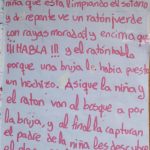 niña que esta limpiando el sotano
y de repente ve un ratón verde
con rayas moradas y encima que
¡¡HABLA!!! y el ratón habla
porque una bruja le había puesto
un hechizo. Asi que la niña y
el raton van al bosque a por
la bruja, y al final la capturan
el padre de la niña les descubre